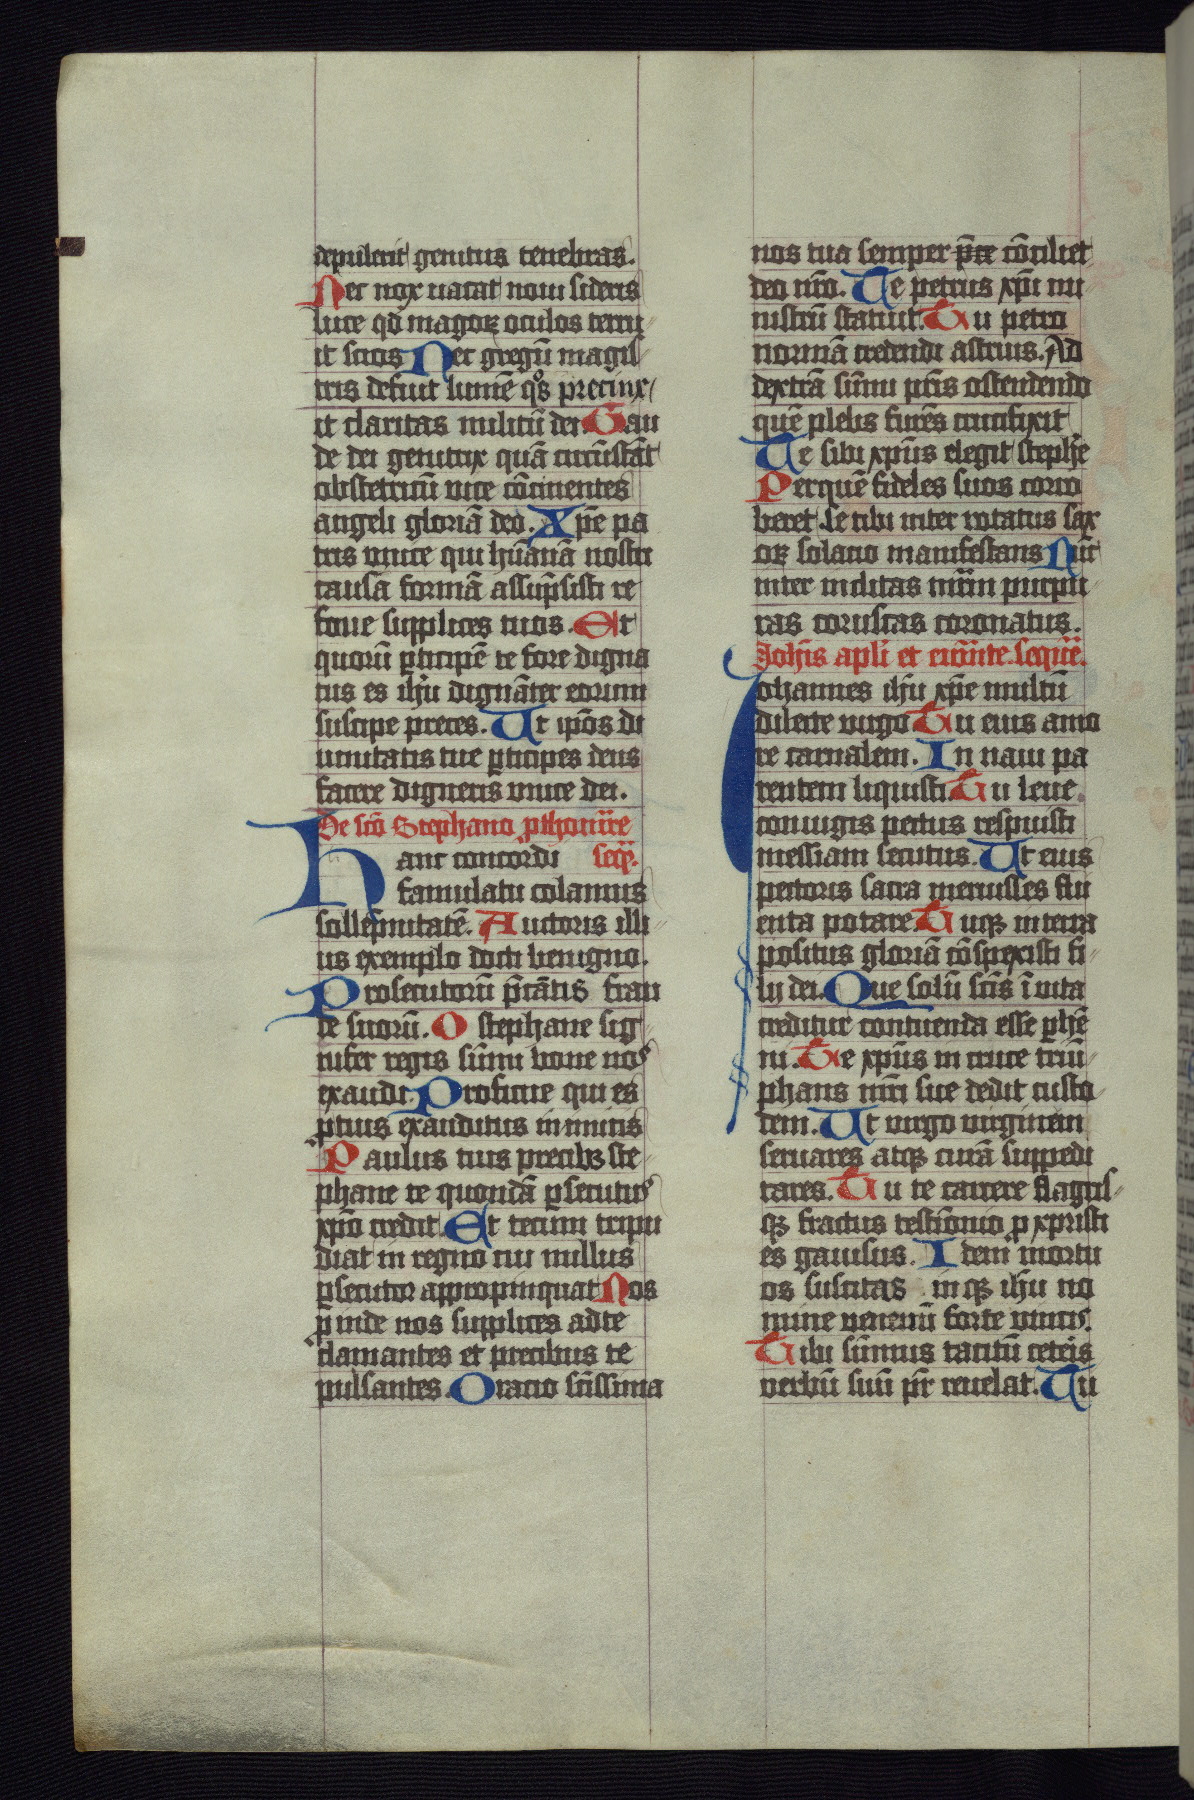 depulerit genitus tenebras.
Nec nox uacat noui sideris
luce qd magoꝝ oculos terru
it scios Nec gregū magis
tris defuit lumē qͦs precinx
it claritas militū dei. Gau
de dei genitrix quā circūstāt
obstetricū uice cōcinentes
angeli gloriā deo. Xpe pa
tris vnice qui hūanā nostri
causa formā assūpsisti re
foue supplices tuos. Et
quorū ꝑticipē te fore digna
tus es ihu dignāter eorum
suscipe preces. Ut ipōs di
uinitatis tue ꝑticipes deus
facere digneris vnice dei.
De sco Stephano ꝓthomre
anc concordi seqͣ.
Hfamulatu colamus
sollēpnitatē. Auctoris illi
us exemplo docti benigno.
Prosecutorū p̄cātis frau
de suorū. O stephane sig
nifer regis sūmi bone nos
exaudi. Proficue qui es
ꝓtuis exauditus inimicis
Paulus tuis precibꝫ ste
phane te quondā ꝑsecutus
xpō credit Et tecum tripu
diat in regno cui nullus
ꝑsecutor appropinquat Nos
ꝓinde nos supplices ad te
clamantes et precibus te
pulsantes. Oracio scissima
nos tua semper p̄ce cōciliet
deo nr̄o. Te petrus xpi mi
nistrū statuit. Tu petro
normā credendi astruis. Ad
dextrā sūmi pr̄is ostendendo
quē plebs furēs crucifixit
Te sibi xpūs elegit stephe
Per quē fideles suos corro
boret. Se tibi inter rotatus sax
oꝝ solacio manifestans Nūc
inter inclitas mr̄m purpu
ras coruscas coronatus.
Iohis apli et ewāte. seqūe.
Iohannes ihu xpe multū
dilecte uirgo Tu eius amo
re carnalem. In naui pa
rentem liquisti. Tu leue
coniugis pectus respuisti
messiam secutus. Ut eius
pectoris sacra meruisses flu
enta potare. Tuqꝫ in terra
positus gloriā cōspexisti fi
lij dei. Que solū scis ī uita
creditur contuenda esse ꝑhē
ni. Te xpūs in cruce triū
phans mr̄i sue dedit custo
dem. Ut uirgo uirginem
seruares atqꝫ curā suppedi
tares. Tu te carcere flagris
qꝫ fractus testīonio ꝓ xpristi
es gauisus. Idem mortu
os suscitas inqꝫ ihu no
mine uenenū forte uincis.
Tibi sūmus tacitū ceteis
verbū suū pr̄ reuelat. Tu